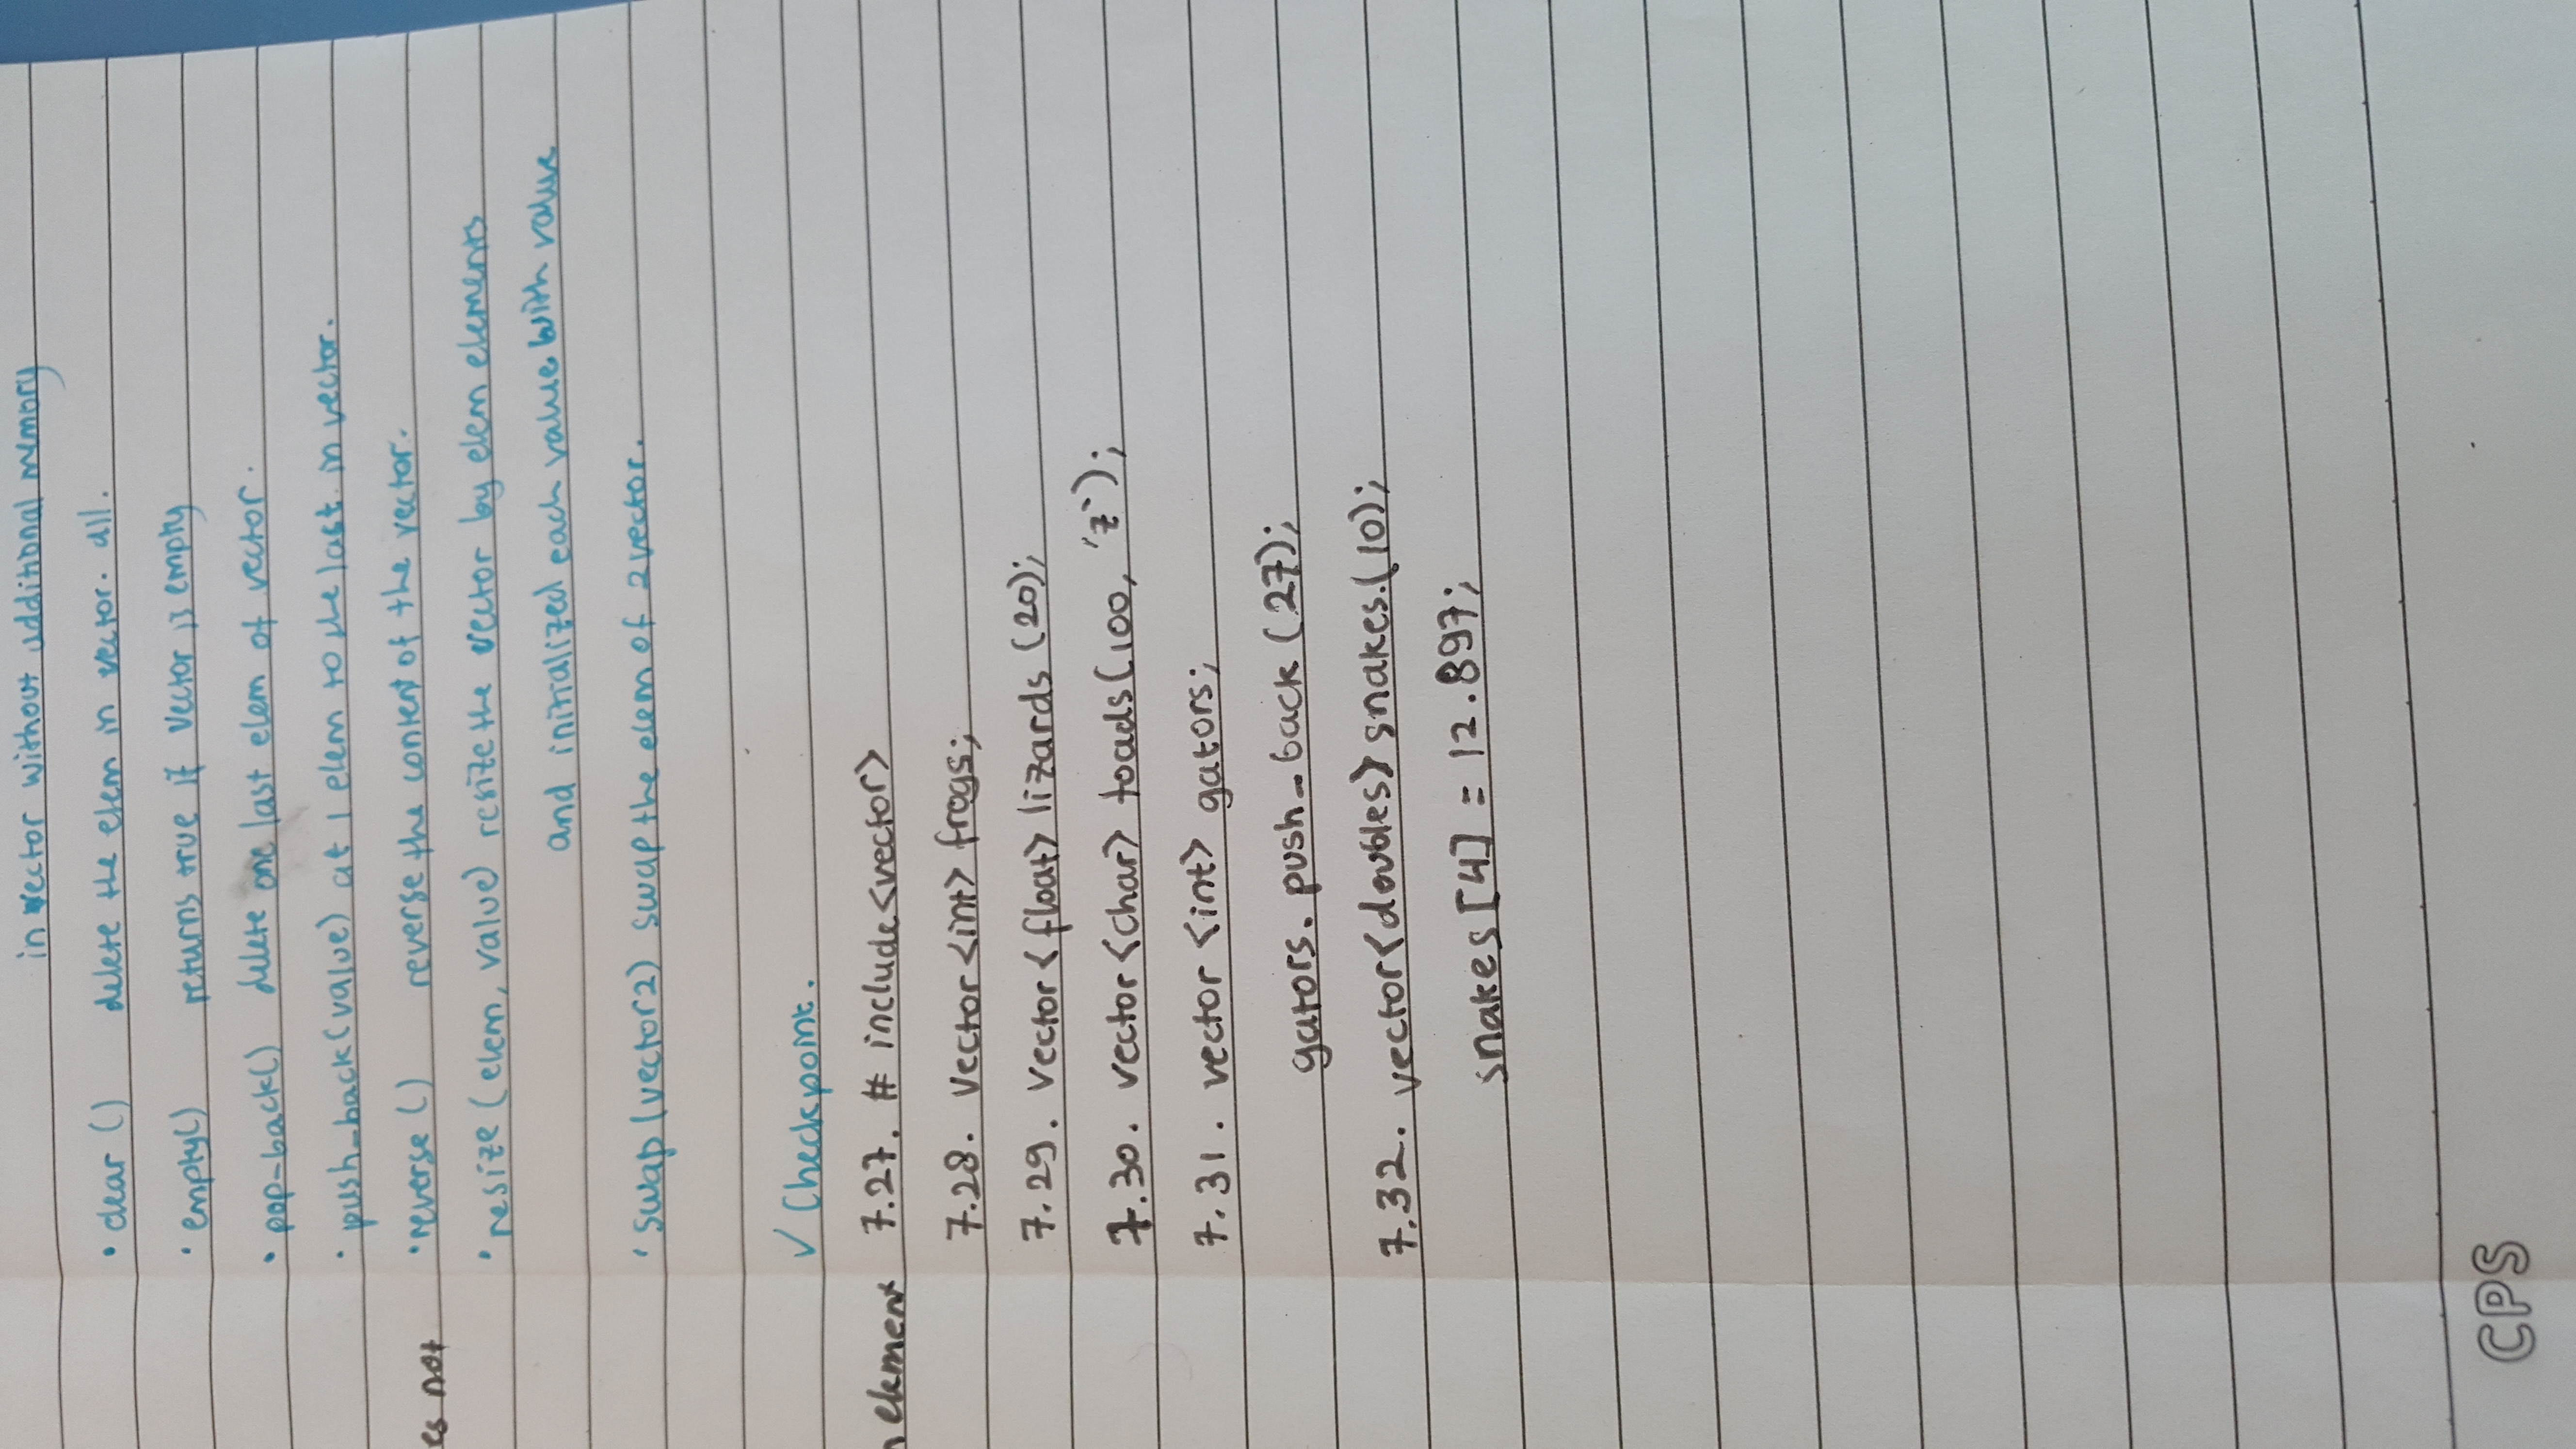 in vector without additional memory
• clear () delete the elem in vector. all.
• empty() returns true if vector is empty
• pop-back() delete one last elem of vector.
• push_back(value) at 1 elem to the last in vector.
es not
• reverse () reverse the content of the vector.
• resize (elem, value) resize the vector by elem elements
and initialized each value with value
• swap (vector2) swap the elem of 2 vector.
✓ Checkpoint.
n element
7.27. # include<vector>
7.28. vector <int> frogs;
7.29. vector <float> lizards (20);
7.30. vector <char> toads (100, 'z');
7.31. vector <int> gators;
gators. push_back (27);
7.32. vector<doubles> snakes.(10);
snakes [4] = 12.897;
CPS